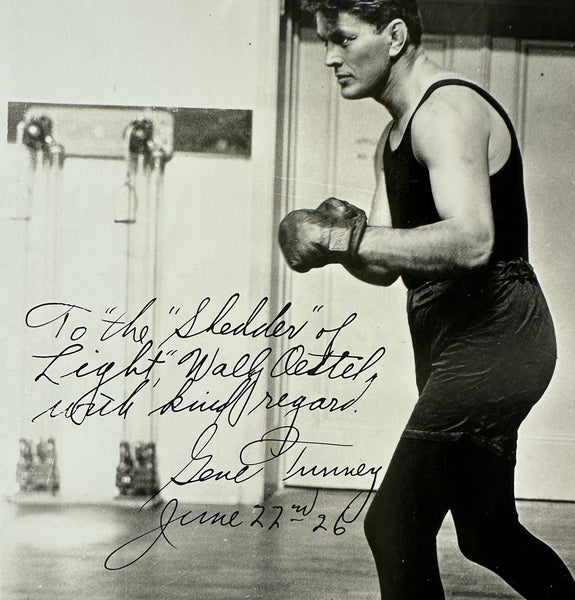 To "the "Shedder" of
Light" Wally Oestel,
with kind regard.
Gene Tunney
June 22nd 26